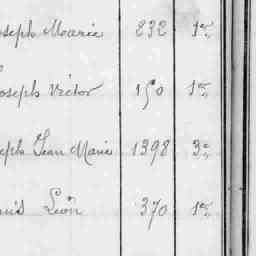 oseph Marie 232 1er
oseph Victor 150 1er
eph Jean Marie 1398 3e
uis Léon 370 1er